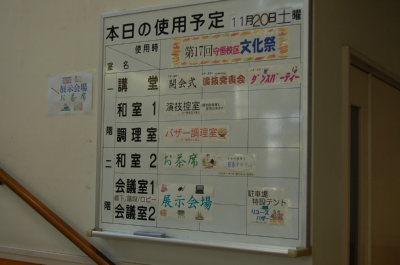 本日の使用予定 11月20日土曜
使用時
室名
第17回 守恒校区 文化祭
一階
講堂 開会式 演技発表会 ダンスパーティー
和室1 演技控室
調理室 バザー調理室
二階
和室2 お茶席
会議室1
廊下、階段、ロビー
会議室2
展示会場
駐車場
特設テント
リユース
バザー
展示会場
お茶席